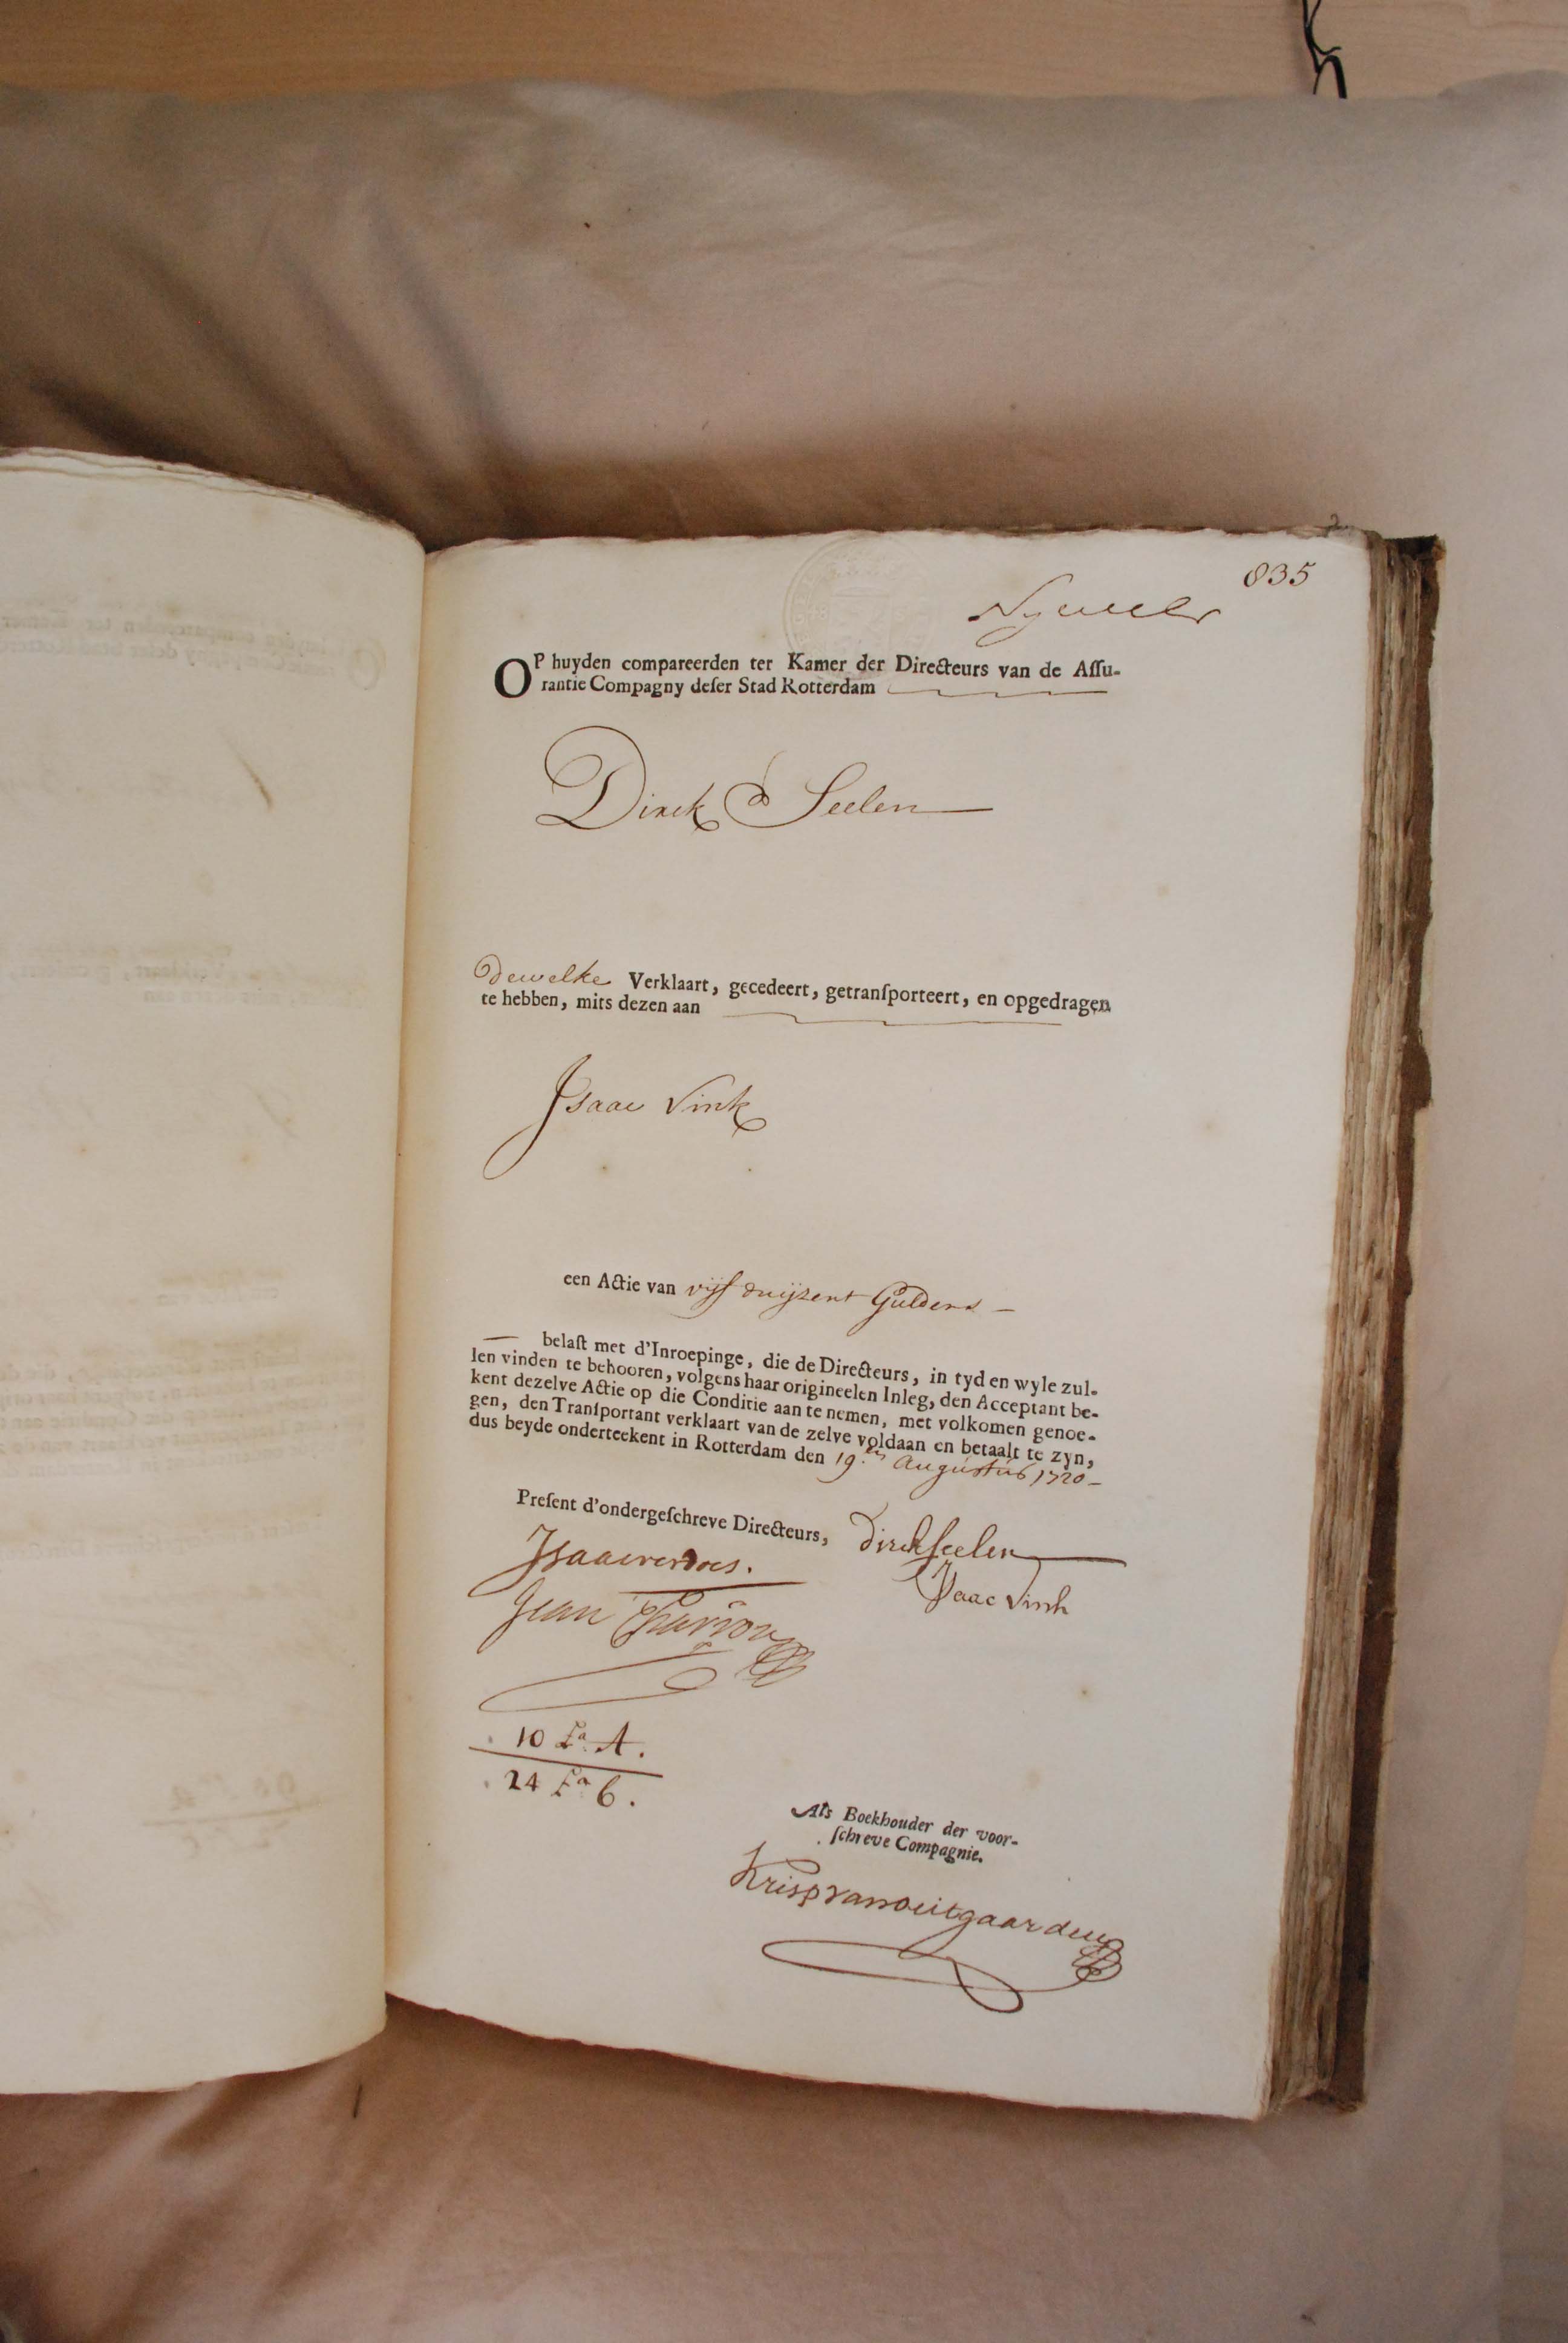 835
OP huyden compareerden ter Kamer der Directeurs van de Aſſu-
rantie Compagny deſer Stad Rotterdam
Dirck Seelen
Dewelke Verklaart, gecedeert, getranſporteert, en opgedragen
te hebben, mits dezen aan
Isaac Vink
een Actie van vijf duijzent Guldens
belaſt met d'Inroepinge, die de Directeurs, in tyd en wyle zul-
len vinden te behooren, volgens haar origineelen Inleg, den Acceptant be-
kent dezelve Actie op die Conditie aan te nemen, met volkomen genoe-
gen, den Tranſportant verklaart van de zelve voldaan en betaalt te zyn,
dus beyde onderteekent in Rotterdam den 19.en Augustus 1720
Preſent d'ondergeſchreve Directeurs, Dirck Seelen
Isaac Vink
Jean
10 La A.
24 La 6.
Als Boekhouder der voor-
ſchreve Compagnie.
Krisp van outgaarden